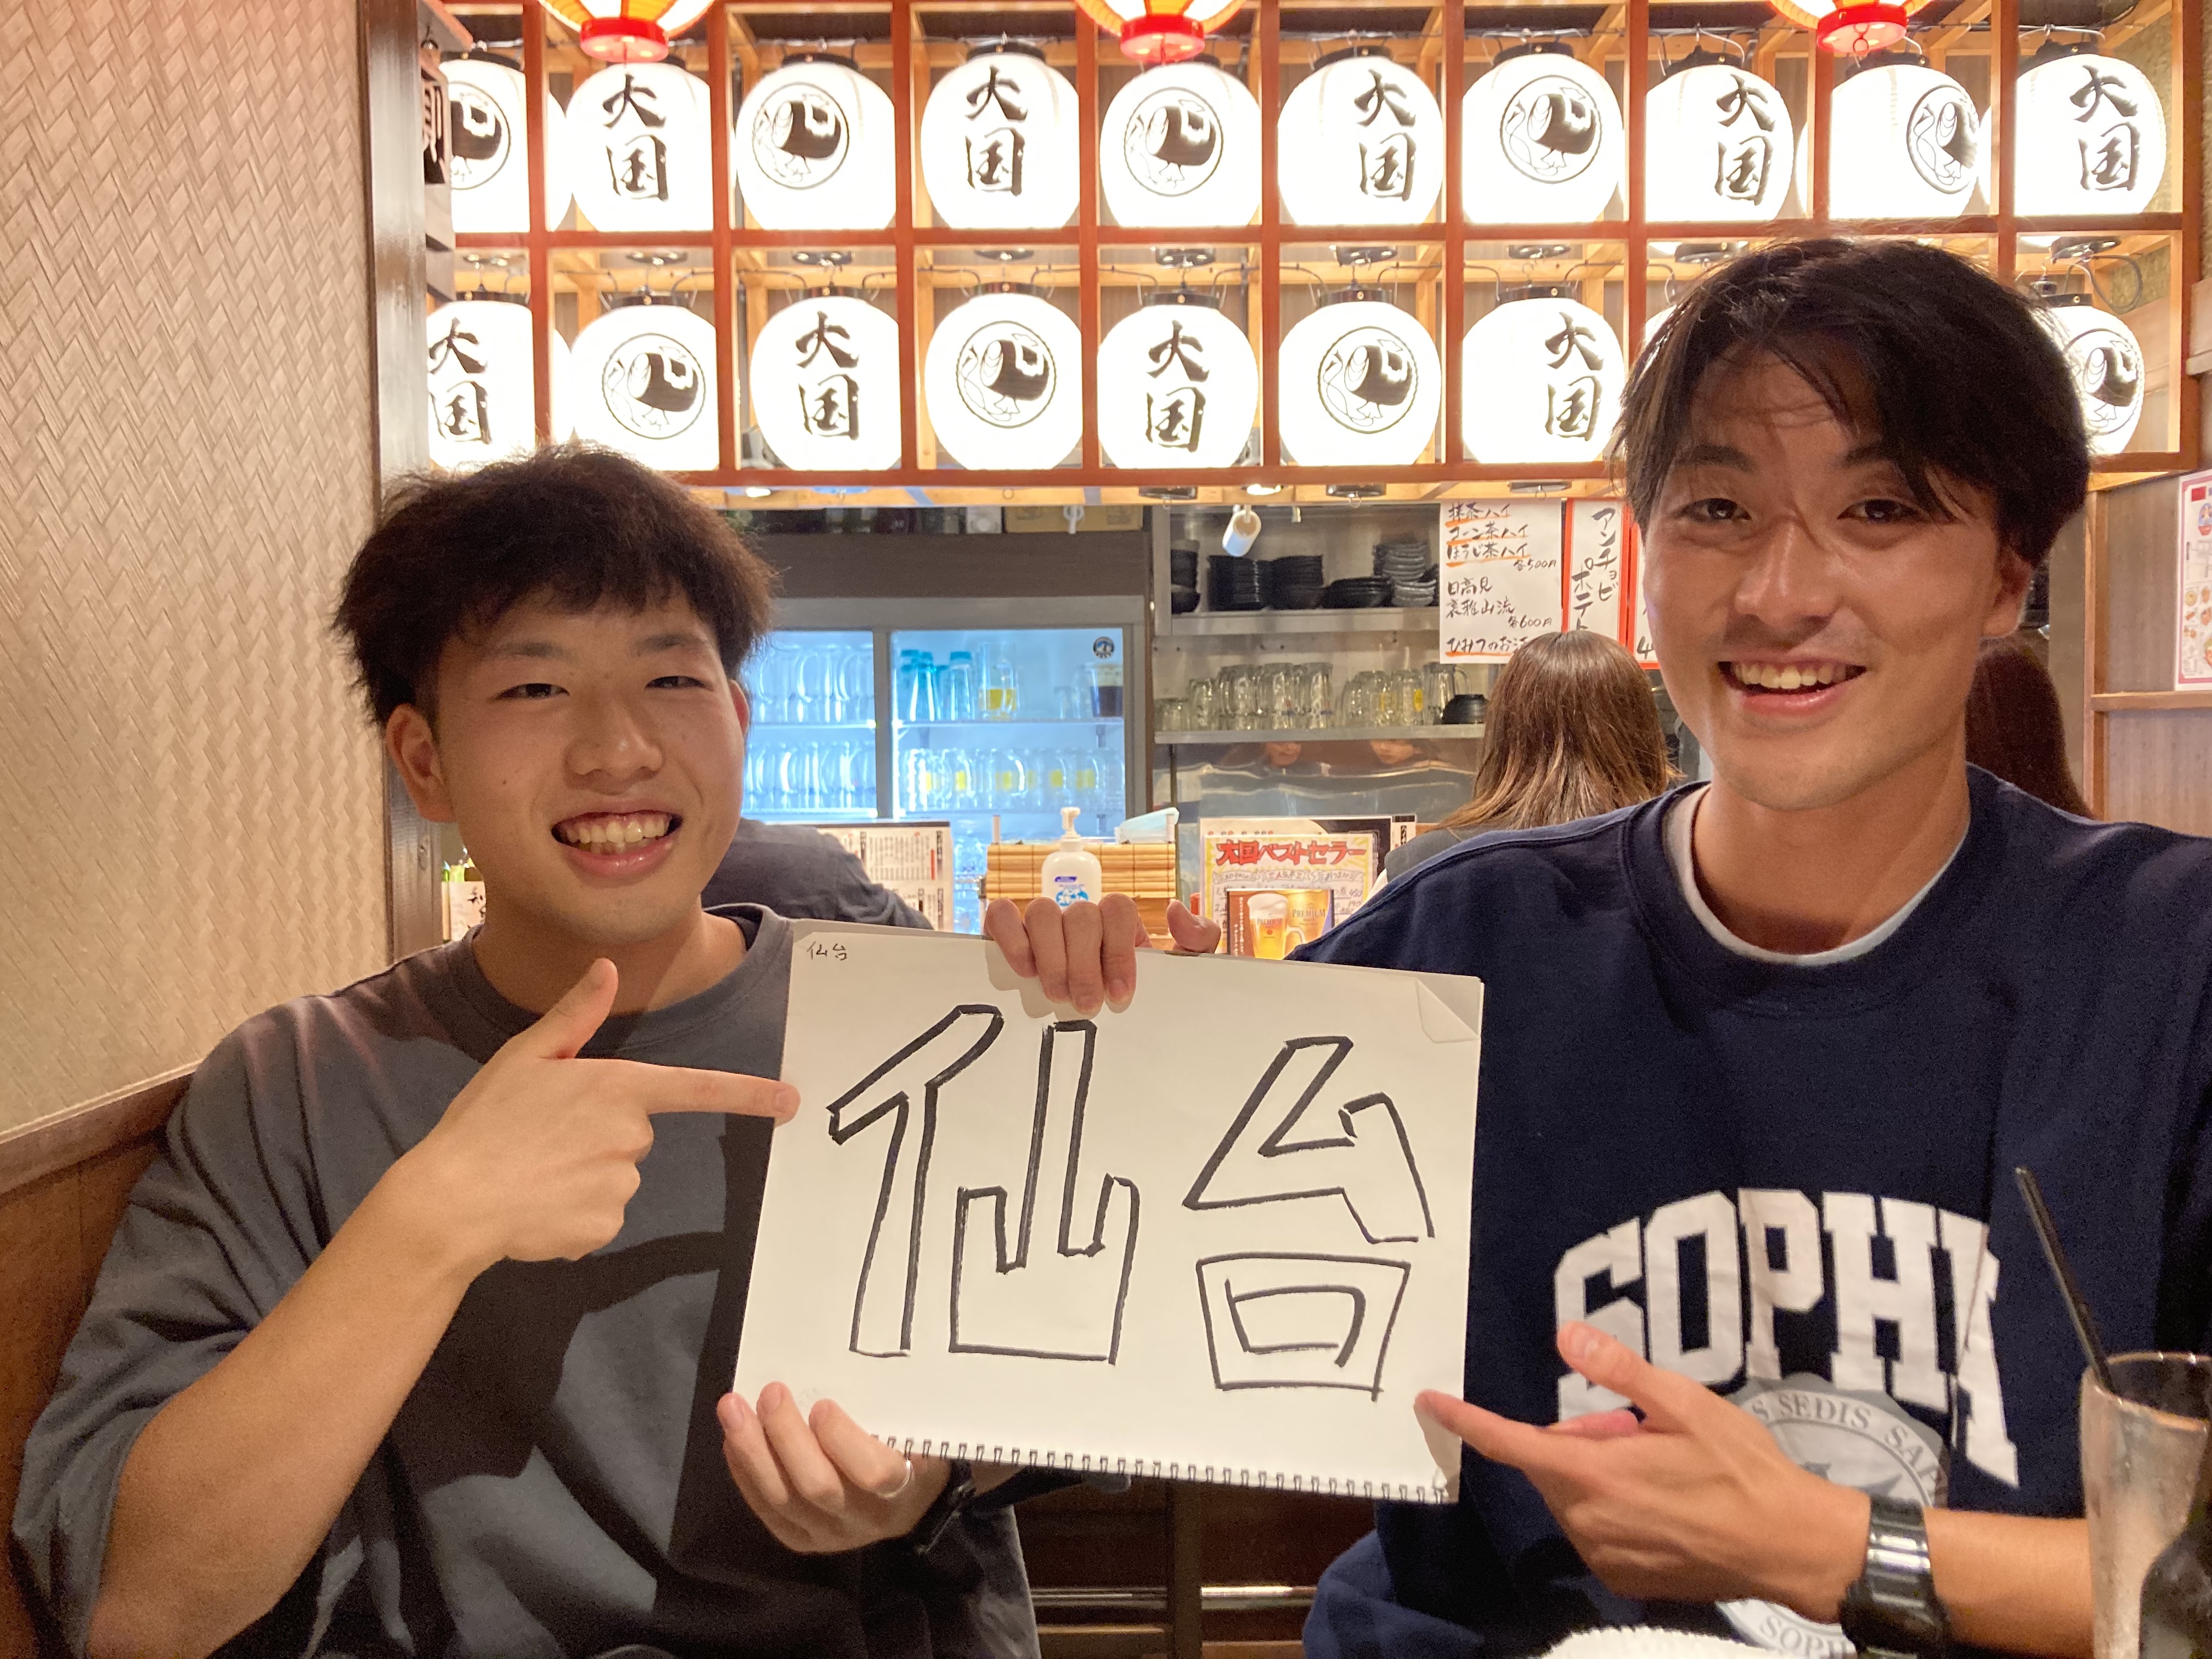 大国
大国
大国
大国
大国
大国
大国
大国
大国
抹茶ハイ
コーン茶ハイ
ほうじ茶ハイ
各500円
日高見
裏雅山流
各600円
ひみつのお
アンチョビ
ポテト
大国ベストセラー
PREMIUM
仙台
仙台
SOPHIA
SEDIS SA
SOPH